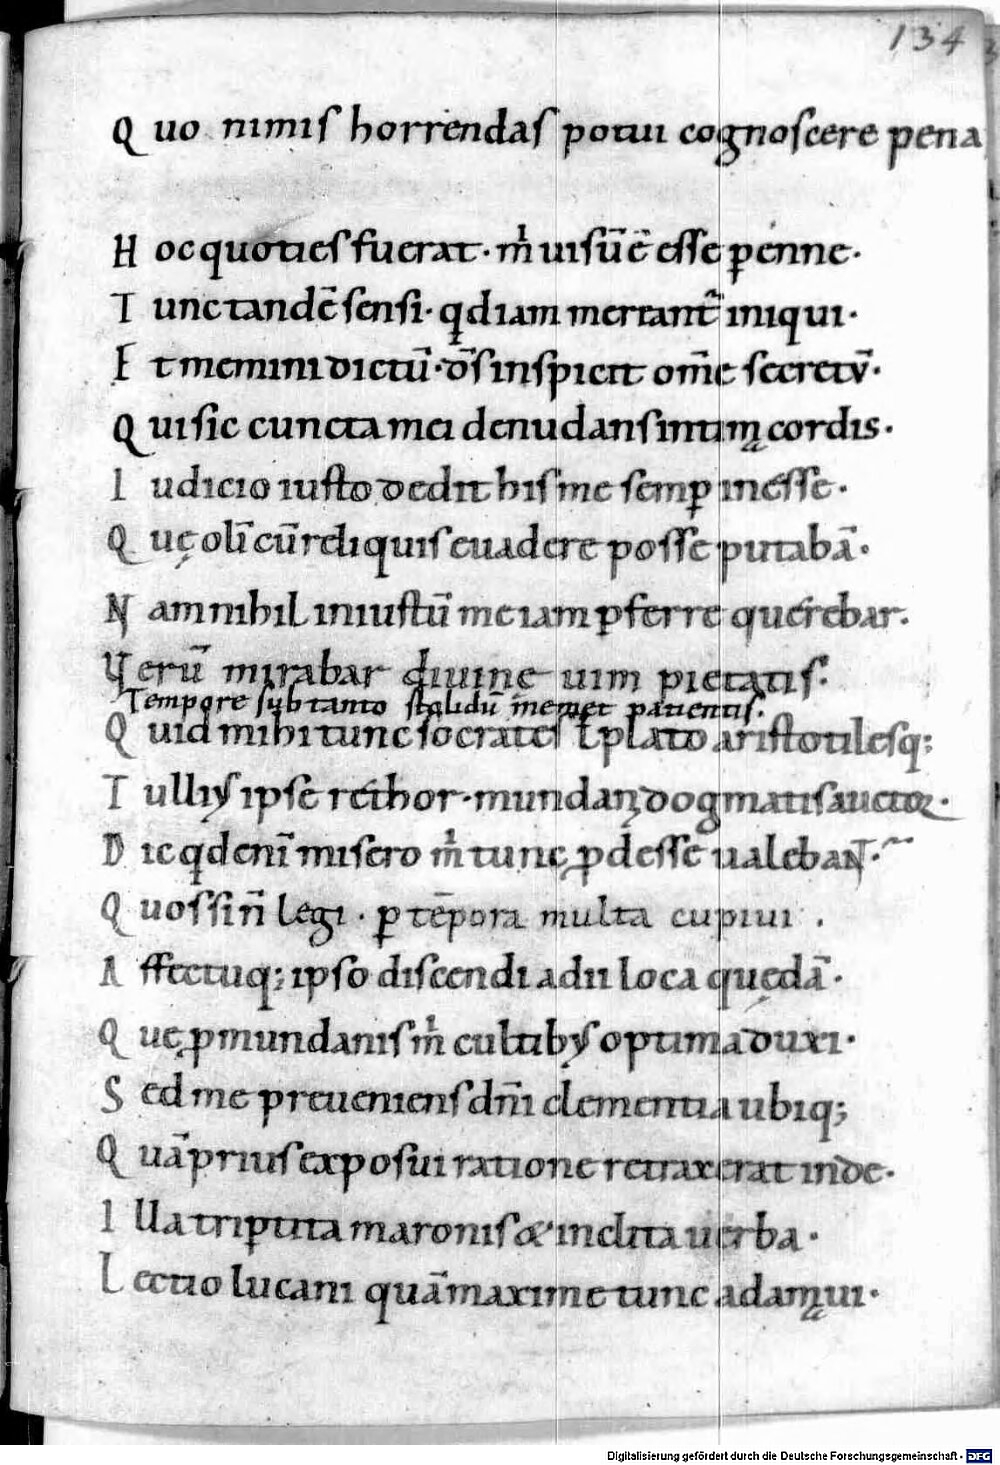 134
Quo nimis horrendas potui cognoscere pena
Hoc quoties fuerat · m̍ uisū ē esse ꝑenne ·
Tunc tandē sensi · qd iam mertant᷑ iniqui ·
Et memini dictū · ds̄ inspicit om̄e secretū ·
Qui sic cuncta mei denudans intima cordis ·
Iudicio iusto dedit his me semꝑ inesse ·
Quę oli cū rdi quis euadere posse putabā ·
Nam nihil iniustū me iam ꝑferre querebar .
Uerū mirabar diuine uim pietatis .
Tempore sub tanto stolidū memet patientis .
Quid mihi tunc socrates ł plato aristotilesq;
Tullius ipse rethor · mundani dogmatis auctor ·
Dic qd eni misero m̍ tunc ꝓdesse ualebaNT ·
Quos sin̄ legi · ꝑ tēpora multa cupiui .
Affectuq; ipso discendi adii loca quędā ·
Quę ꝓ mundanis m̍ cultibus optima duxi ·
Sed me preueniens dn̄i clementia ubiq;
Quā prius exposui ratione retraxerat inde ·
Illa tripꝑtita maronis & inclita uerba ·
Lectio lucani quā maxime tunc adamaui ·
Digitalisierung gefördert durch die Deutsche Forschungsgemeinschaft - DFG